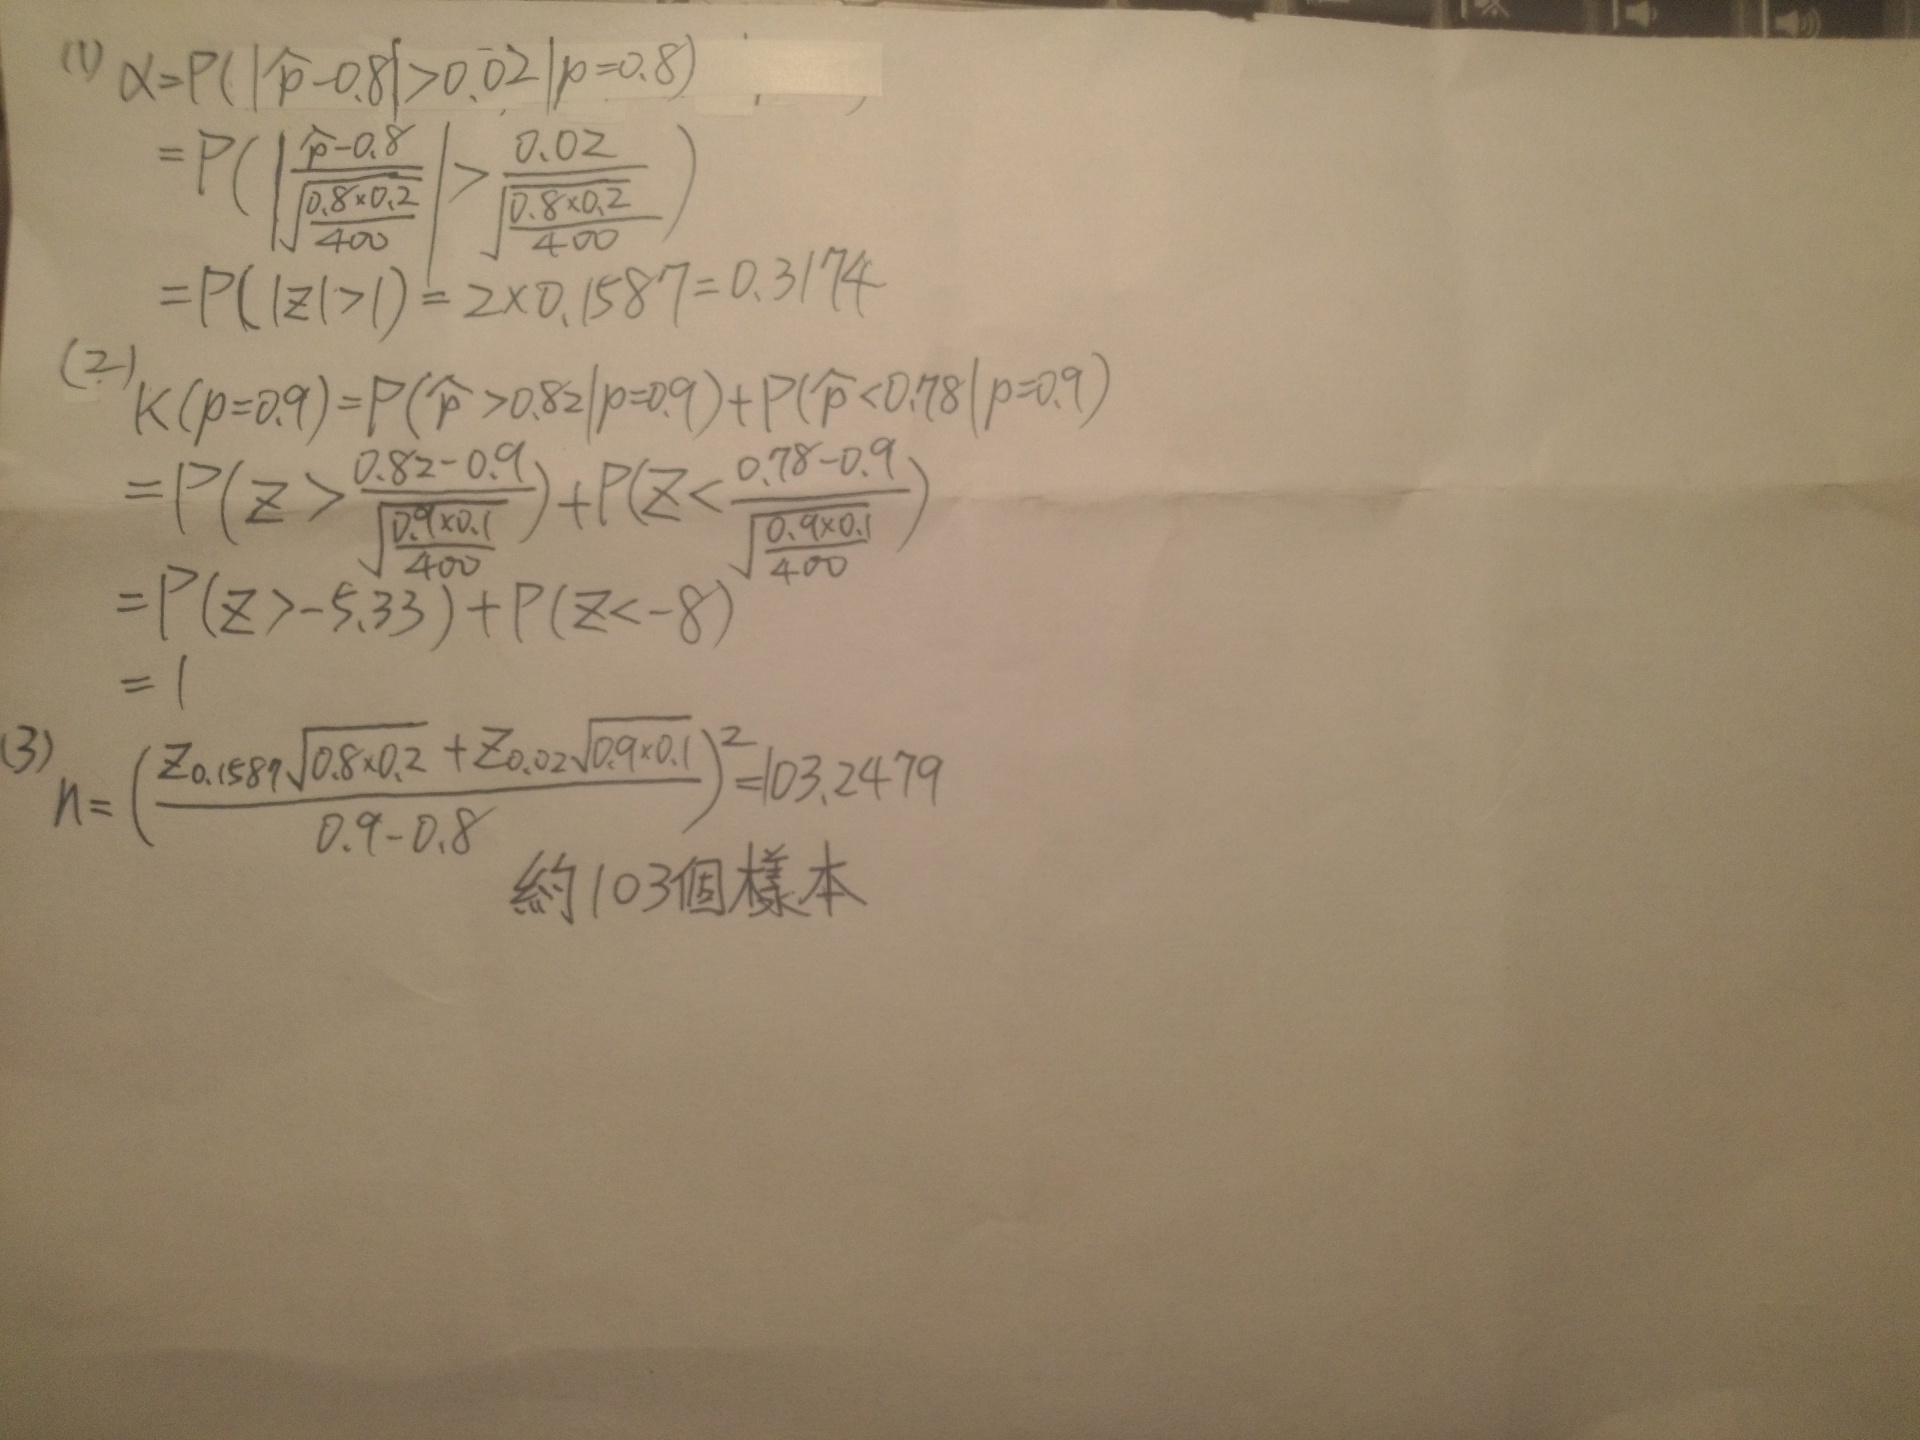 (1) α=P(|p̂-0.8|>0.02|p=0.8)
=P(|(p̂-0.8)/√(0.8×0.2/400)|>0.02/√(0.8×0.2/400))
=P(|z|>1)=2×0.1587=0.3174
(2) K(p=0.9)=P(p̂>0.82|p=0.9)+P(p̂<0.78|p=0.9)
=P(z>(0.82-0.9)/√(0.9×0.1/400))+P(z<(0.78-0.9)/√(0.9×0.1/400))
=P(z>-5.33)+P(z<-8)
=1
(3) n=((z0.1587√(0.8×0.2)+z0.02√(0.9×0.1))/(0.9-0.8))²=103.2479
約103個樣本